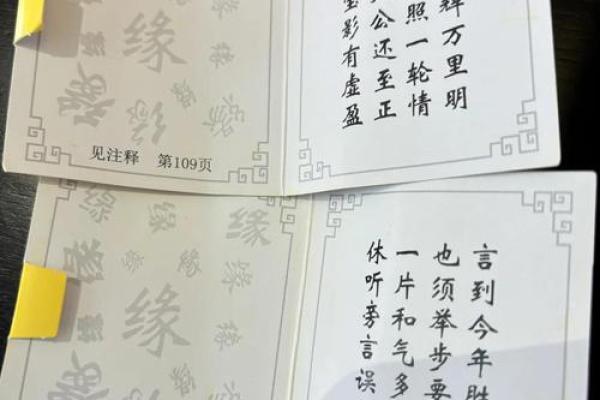 缘
见注释 第109页
万里明
照一轮情
公还至正
影有虚盈
缘
言到今年胜
也须举步要
一片和气多
休听旁言误